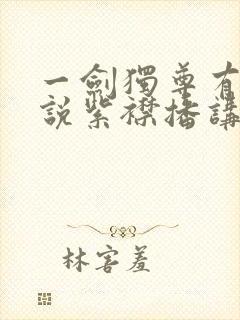 一劍獨尊有
說紫襟播講
林害羞